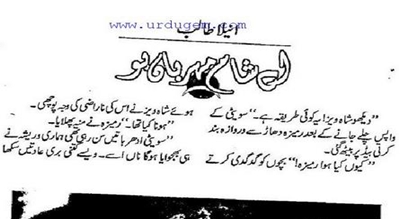 www.urdugem.com
انیلا طالب
اے شام مہربان ہو
"دیکھو شاہ ویز! یہ کوئی طریقہ ہے۔" سویٹی کے
واپس چلے جانے کے بعد رمیزہ دھاڑ سے دروازہ بند
کرتی بیڈ پر بیٹھ گئی۔
"کیوں کیا ہوا رمیزہ!" بچوں کو گدگدی کرتے
ہوئے شاہ ویز نے اس کی ناراضی کی وجہ پوچھی۔
"ہونا کیا تھا۔" رمیزہ نے منہ پھلایا۔
"سویٹی ادھر باتیں سن رہی تھی ہماری وریشہ نے
ہی بھجوایا ہوگا ناں اسے۔ ویسے کتنی بری عادتیں سکھا